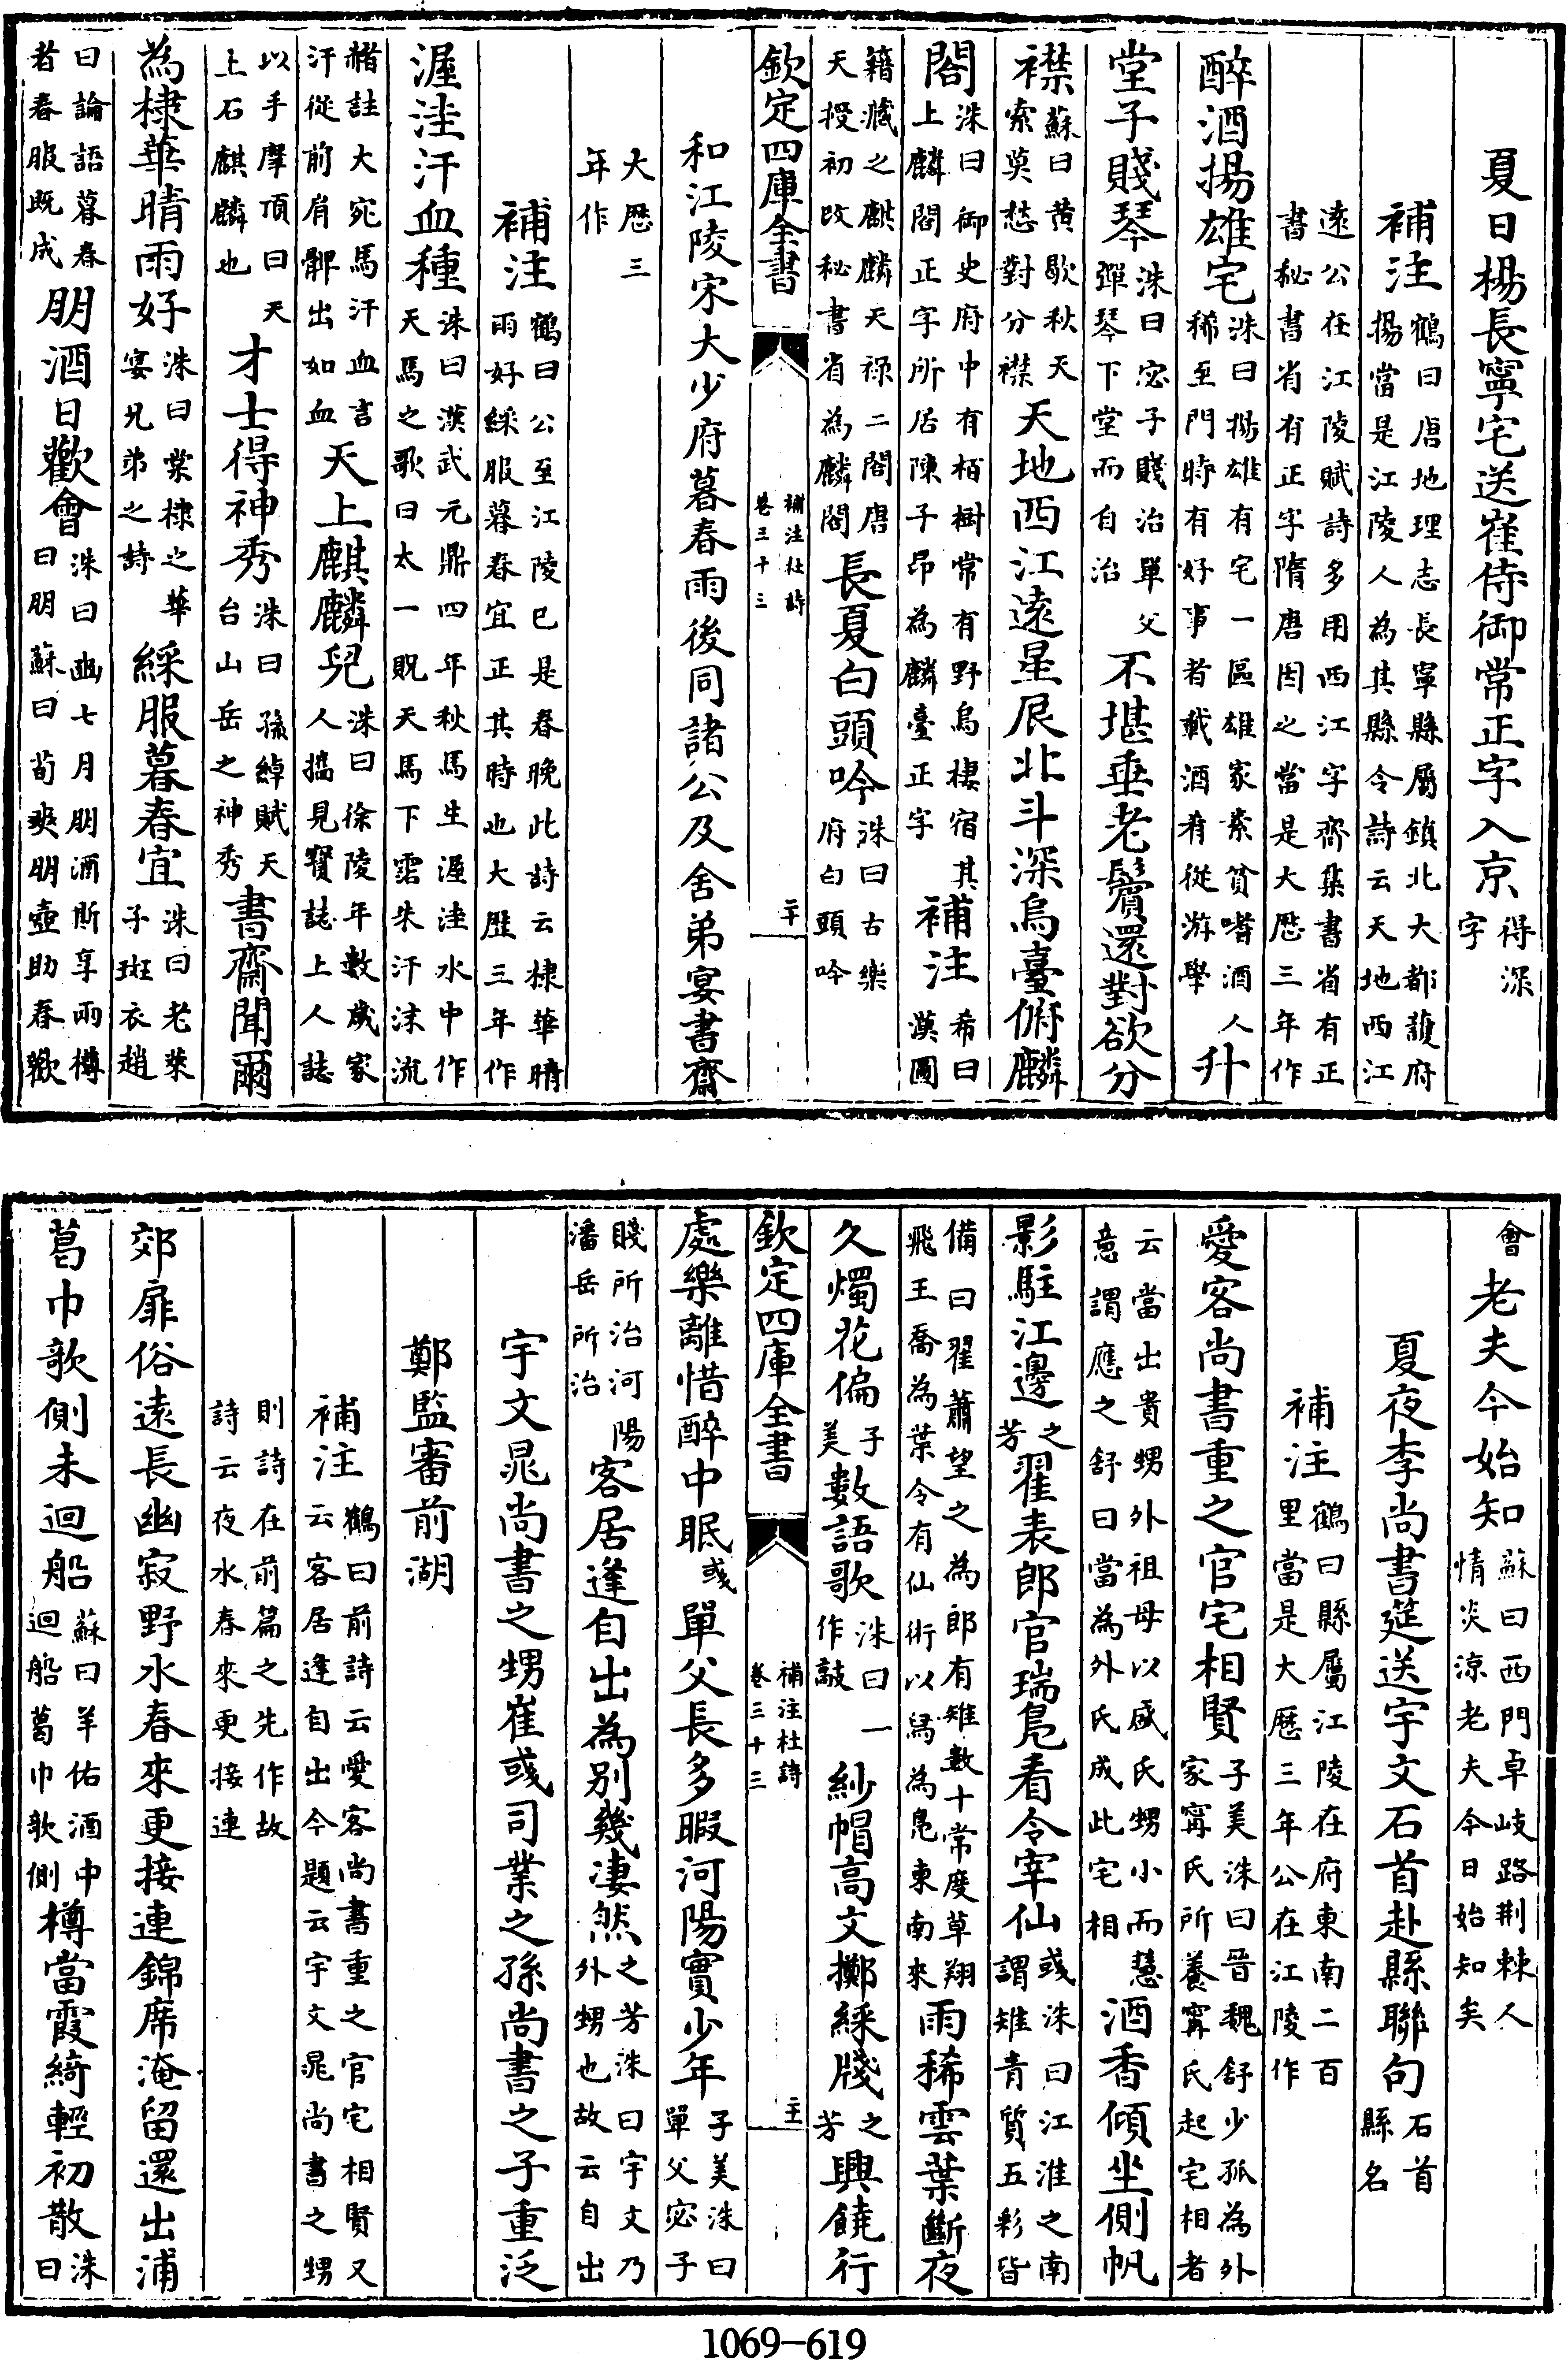 夏日楊長寧宅送崔侍御常正字入京得深字
補注鶴曰唐地理志長寧縣屬鎮北大都䕶府楊當是江陵人為其縣令詩云天地西江
遠公在江陵賦詩多用西江字齊集書省有正書秘書省有正字隋唐因之當是大厯三年作
醉酒揚雄宅洙曰揚雄有宅一區雄家素貧嗜酒人稀至門時有好事者載酒肴從游學升
堂子賤琴洙曰宓子賤治單父彈琴下堂而自治不堪垂老鬢還對欲分
襟蘇曰黄歇秋天索莫愁對分襟天地西江遠星辰北斗深烏臺俯麟
閣洙曰御史府中有栢樹常有野烏棲宿其上麟閣正字所居陳子昂為麟臺正字補注希曰漢圖
籍藏之麒麟天禄二閣唐天授初改秘書省為麟閣長夏白頭吟洙曰古樂府白頭吟
欽定四庫全書 補注杜詩卷三十三 二十
和江陵宋大少府暮春雨後同諸公及舍弟宴書齋
大厯三年作
補注鶴曰公至江陵已是春晚此詩云棣華晴雨好綵服暮春宜正其時也大歴三年作
渥洼汗血種洙曰漢武元鼎四年秋馬生渥洼水中作天馬之歌曰太一貺天馬下霑朱汗沫流
赭註大宛馬汗血言汗從前肩髆出如血天上麒麟兒洙曰徐陵年數嵗家人攜見寳誌上人誌
以手摩頂曰天上石麒麟也才士得神秀洙曰孫綽賦天台山岳之神秀書齋聞爾
為棣華晴雨好洙曰棠棣之華宴兄弟之詩綵服暮春宜洙曰老萊子斑衣趙
曰論語暮春者春服既成朋酒日歡會洙曰豳七月朋酒斯享雨樽曰朋蘇曰荀爽朋壺助春歡
會老夫今始知蘇曰西門卓岐路荆棘人情炎涼老夫今日始知矣
夏夜李尚書筵送宇文石首赴縣聯句石首縣名
補注鶴曰縣屬江陵在府東南二百里當是大厯三年公在江陵作
愛客尚書重之官宅相賢子美洙曰晋魏舒少孤為外家甯氏所養甯氏起宅相者
云當出貴甥外祖母以盛氏甥小而慧意謂應之舒曰當為外氏成此宅相酒香傾坐側帆
影駐江邊之芳翟表郎官瑞鳬看令宰仙彧洙曰江淮之南謂雉青質五彩皆
備曰翟蕭望之為郎有雉數十常度草翔飛王喬為葉令有仙術以舄為鳬東南來雨稀雲葉斷夜
久燭花偏子美數語歌洙曰一作敲紗帽高文擲綵牋之芳興饒行
欽定四庫全書 補注杜詩卷三十三 二十一
處樂離惜醉中眠彧單父長多暇河陽實少年子美洙曰單父宓子
賤所治河陽潘岳所治客居逢自出為别幾凄然之芳洙曰宇文乃外甥也故云自出
宇文晁尚書之甥崔彧司業之孫尚書之子重泛
鄭監審前湖
補注鶴曰前詩云愛客尚書重之官宅相賢又云客居逢自出今題云宇文晁尚書之甥
則詩在前篇之先作故詩云夜水春來更接連
郊扉俗遠長幽寂野水春來更接連錦席淹留還出浦
葛巾歌側未迴船蘇曰羊佑酒中迴船葛巾歌側樽當霞綺輕初散洙曰
1069-619